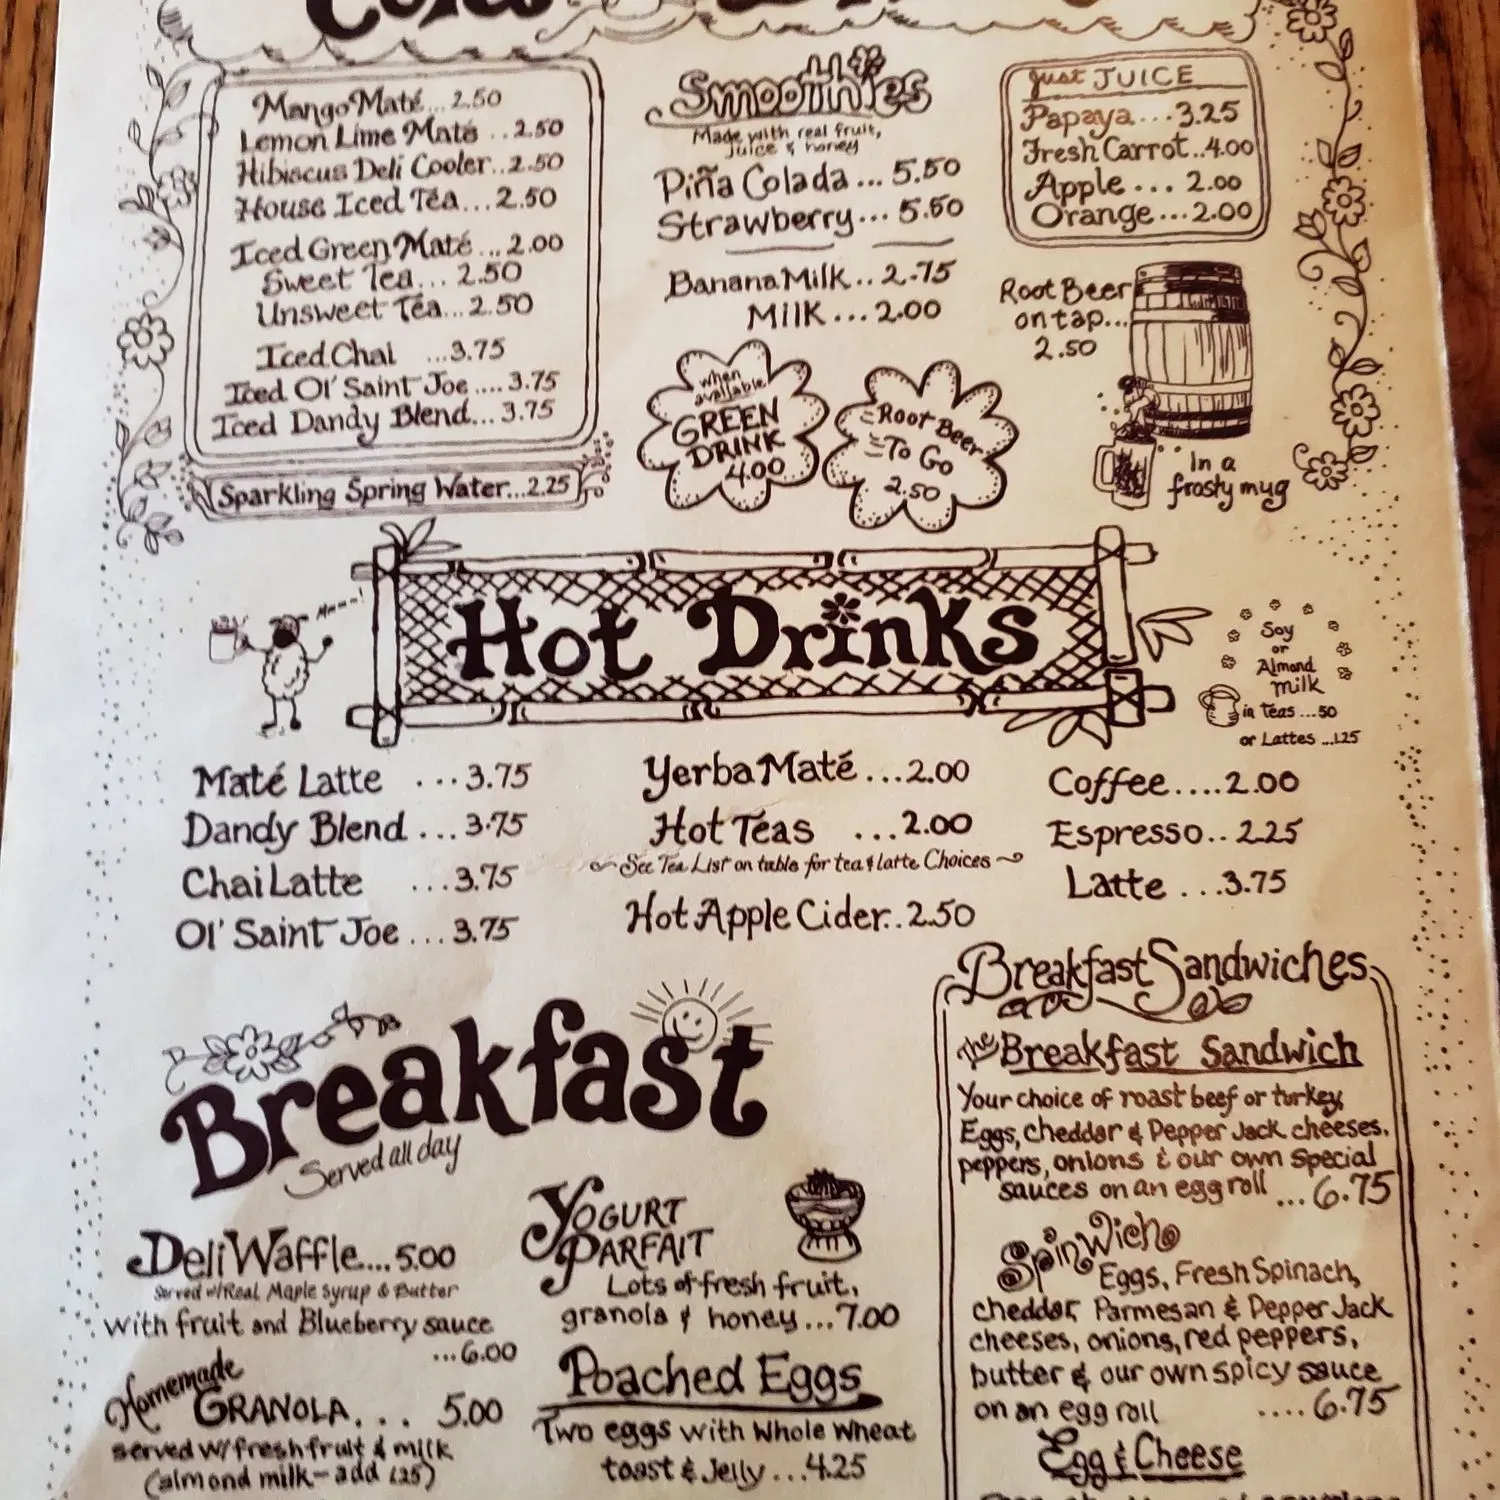 Mango Maté...2.50
Lemon Lime Maté...2.50
Hibiscus Deli Cooler..2.50
House Iced Tea...2.50
Iced Green Maté...2.00
Sweet Tea... 2.50
Unsweet Tea...2.50
Iced Chai ...3.75
Iced Ol' Saint Joe....3.75
Iced Dandy Blend...3.75
Sparkling Spring Water...2.25
Smoothies
Made with real fruit,
juice & honey
Piña Colada...5.50
Strawberry...5.50
Banana Milk..2.75
Milk...2.00
when
available
GREEN
DRINK
4.00
Root Beer
To Go
2.50
Just JUICE
Papaya...3.25
Fresh Carrot..4.00
Apple...2.00
Orange...2.00
Root Beer
on tap...
2.50
In a
frosty mug
Hot Drinks
Soy
or
Almond
Milk
in Teas....50
or Lattes...1.25
Maté Latte ...3.75
Dandy Blend...3.75
Chai Latte ...3.75
Ol' Saint Joe...3.75
Yerba Maté...2.00
Hot Teas ...2.00
See Tea List on table for tea & latte Choices
Hot Apple Cider..2.50
Coffee....2.00
Espresso..2.25
Latte...3.75
Breakfast
Served all day
Deli Waffle...5.00
Served w/Real Maple syrup & Butter
with fruit and Blueberry sauce
...6.00
Homemade
GRANOLA... 5.00
served w/ fresh fruit & milk
(almond milk-add 1.25)
YOGURT
PARFAIT
Lots of fresh fruit,
granola & honey...7.00
Poached Eggs
Two eggs with Whole Wheat
toast & Jelly...4.25
Breakfast Sandwiches
The Breakfast Sandwich
Your choice of roast beef or turkey,
Eggs, cheddar & Pepper Jack cheeses,
peppers, onions & our own special
sauces on an egg roll ...6.75
Spinwich
Eggs, Fresh Spinach,
cheddar, Parmesan & Pepper Jack
cheeses, onions, red peppers,
butter & our own spicy sauce
on an egg roll ....6.75
Egg & Cheese